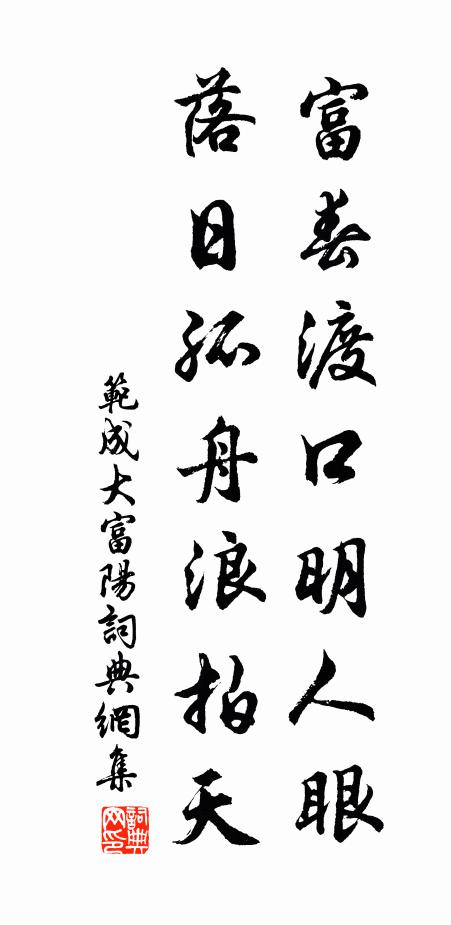 富春渡口明人眼
落日孤舟浪拍天
範成大富陽詞典網集
詞典
网印